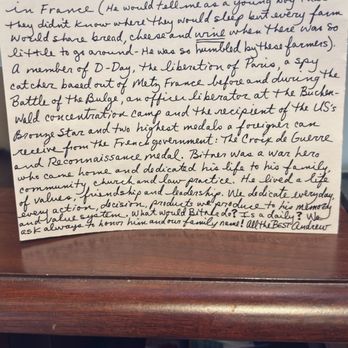 in France (He would tell me as a young boy that
they didn't know where they would sleep but every farm
would share bread, cheese and wine when there was so
little to go around - He was so humbled by these farmers).
A member of D-Day, the liberation of Paris, a spy
catcher based out of Metz, France before and during the
Battle of the Bulge, an officer liberator at the Buchen-
wald concentration camp and the recipient of the US's
Bronze Star and two highest medals a foreigner can
receive from the French government: The Croix de Guerre
and Reconnaissance medal. Bitner was a war hero
who came home and dedicated his life to his family,
community, church and law practice. He lived a life
of values, friendship and leadership. We dedicate everyday
every action, decision, products we produce to his memory
and value system, what would Bitner do? Is a daily? We
ask always to honor him and our family name! All the BEST Andrew